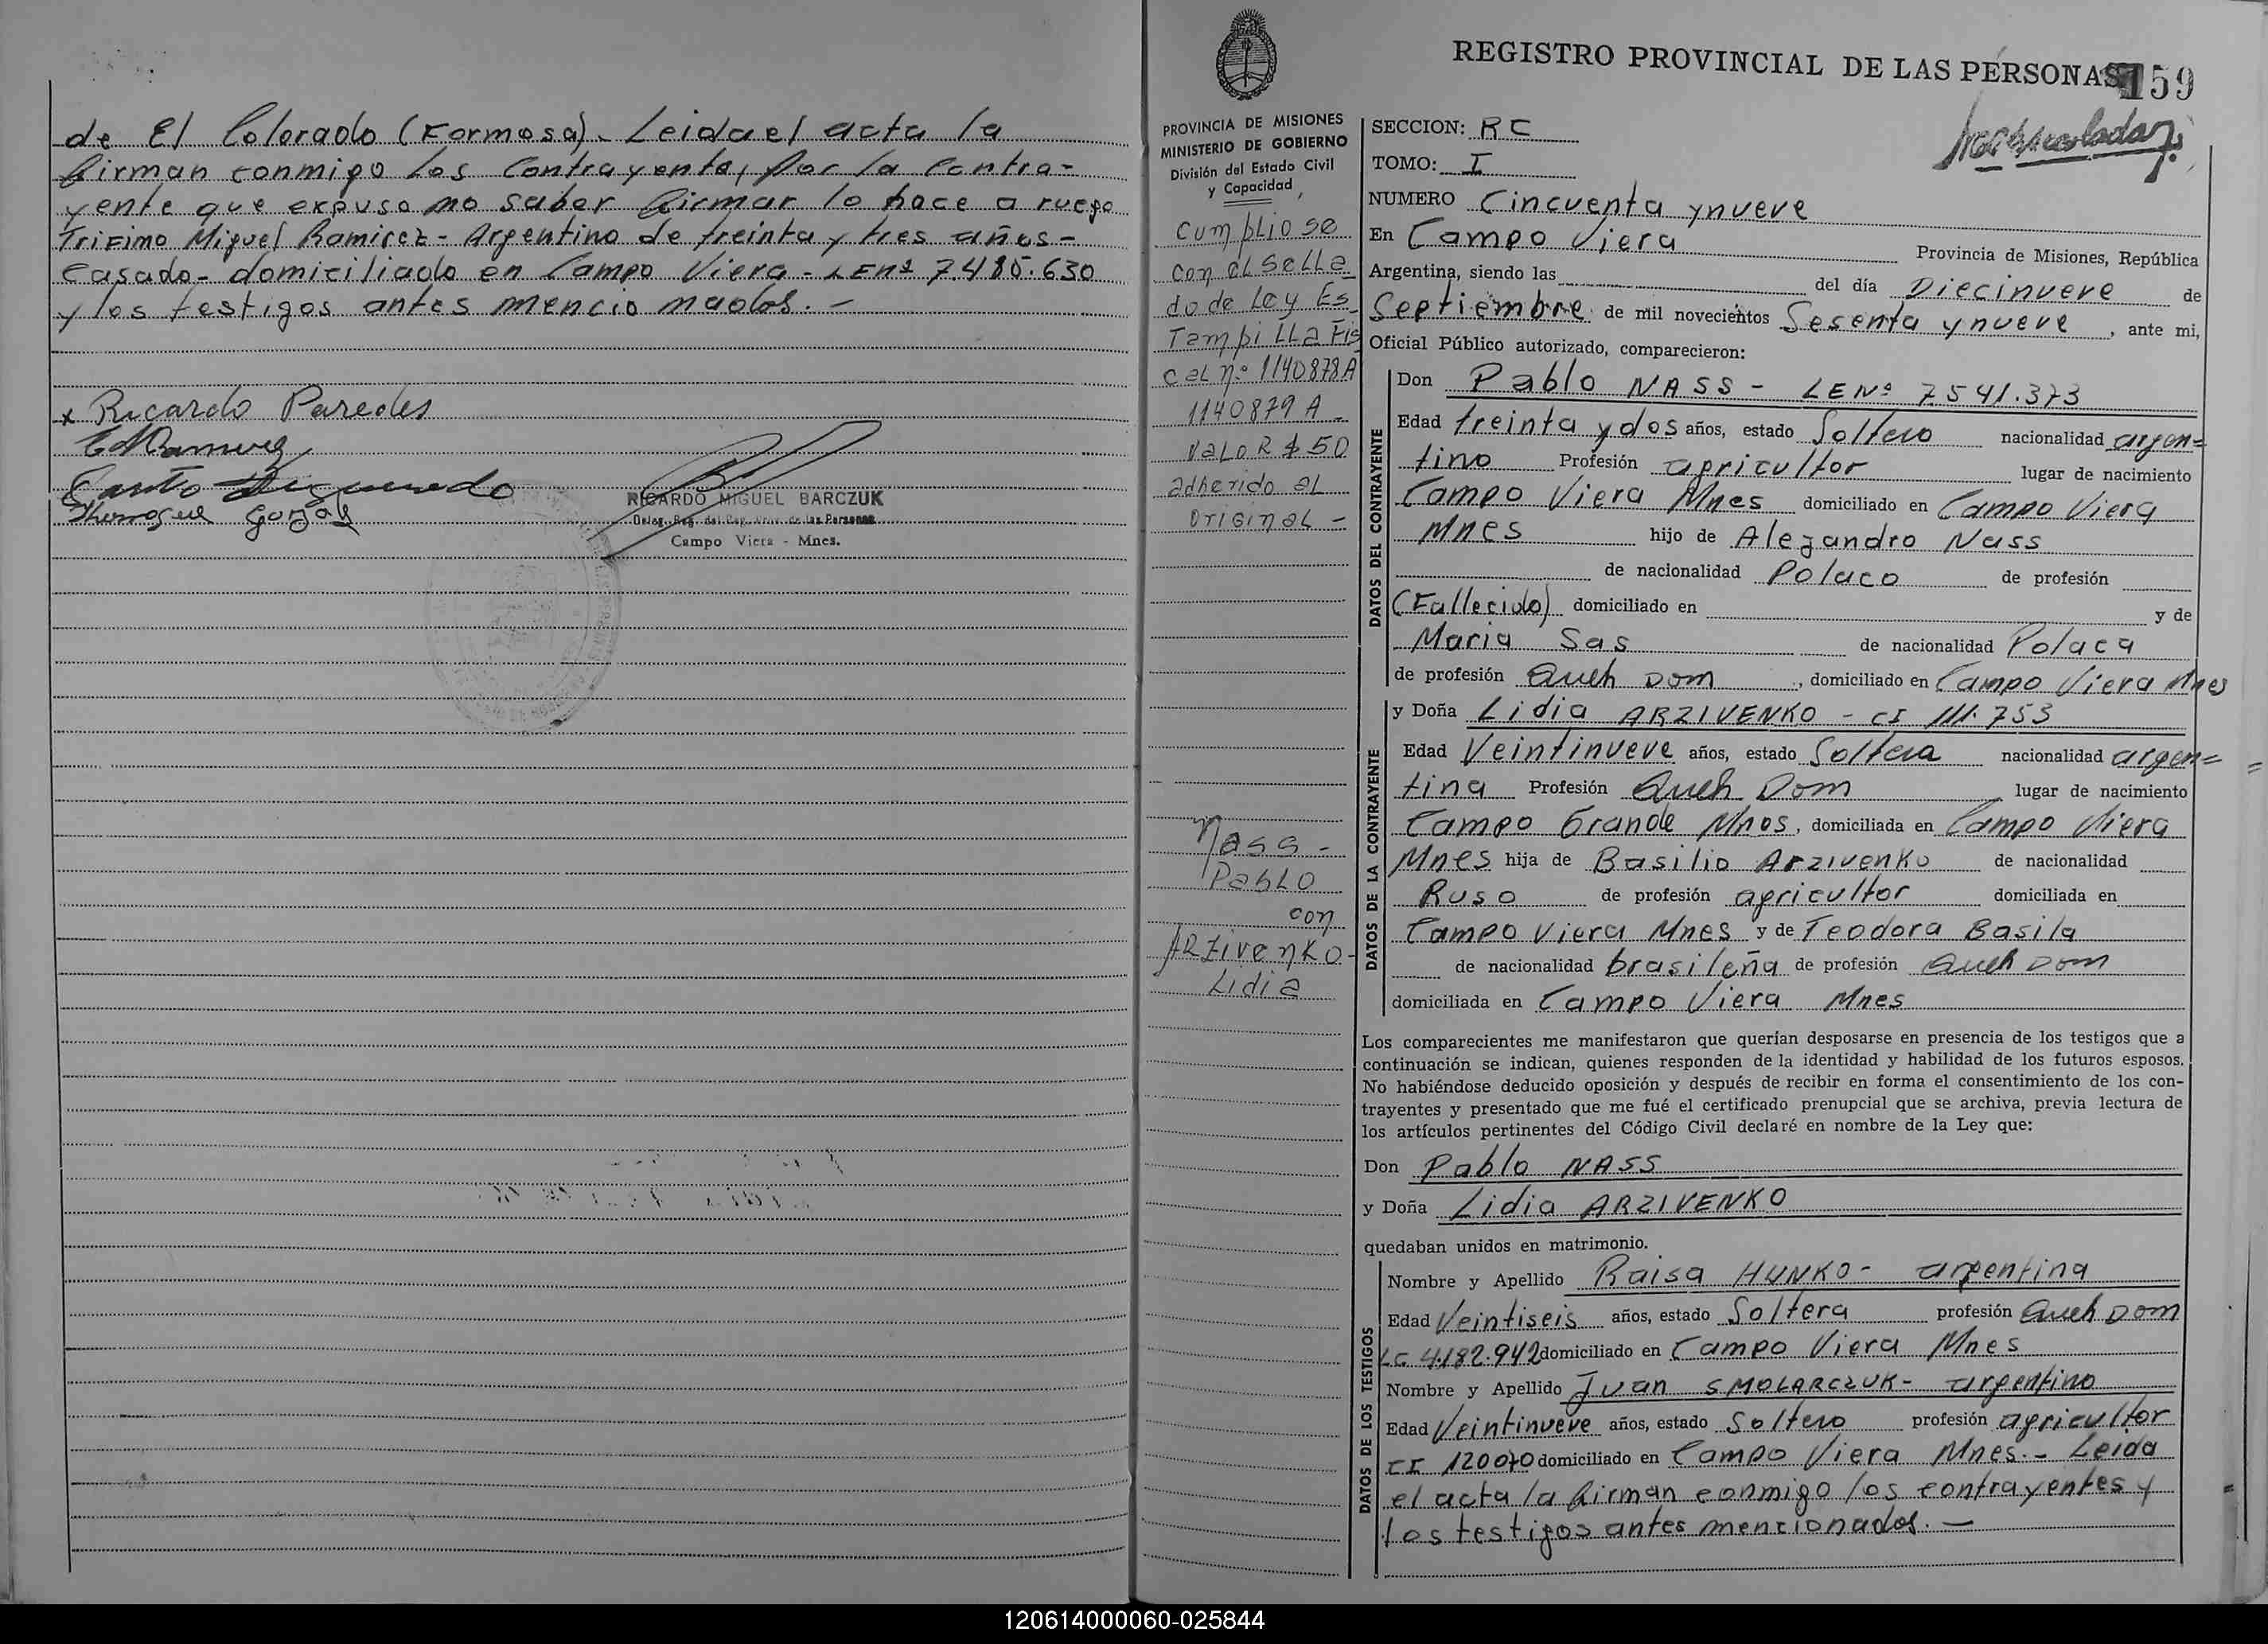 de El Colorado (Formosa). Leida el acta la
firman conmigo los contrayente, por la contra-
yente que expuso no saber firmar lo hace a ruego
Trifimo Miguel Ramirez - Argentino de treinta y tres años -
Casado - domiciliado en Campo Viera - LE Nº 7.485.630
y los testigos antes mencionados. -
x Ricardo Paredes
RICARDO MIGUEL BARCZUK
Campo Viera - Mnes.
REGISTRO PROVINCIAL DE LAS PERSONAS 159
PROVINCIA DE MISIONES
MINISTERIO DE GOBIERNO
División del Estado Civil
y Capacidad
cumplio se
con el sella
do de Ley Es
Tampilla Fis
cal n.º 1140878A
1140879 A -
VALOR $ 50
adherido al
original -
Nass -
Pablo
con
ARZivenko -
Lidia
SECCION: RC
TOMO: I
NUMERO Cincuenta y nueve
En Campo Viera Provincia de Misiones, República
Argentina, siendo las del día Diecinueve de
Septiembre de mil novecientos Sesenta y nueve, ante mi,
Oficial Público autorizado, comparecieron:
DATOS DEL CONTRAYENTE
Don Pablo NASS - LE Nº 7541.373
Edad treinta y dos años, estado Soltero nacionalidad argen=
tino Profesión agricultor lugar de nacimiento
Campo Viera Mnes domiciliado en Campo Viera
Mnes hijo de Alejandro Nass
de nacionalidad Polaco de profesión
(Fallecido) domiciliado en y de
Maria Sas de nacionalidad Polaca
de profesión Queh Dom, domiciliado en Campo Viera Mnes
DATOS DE LA CONTRAYENTE
y Doña Lidia ARZIVENKO - CI 111.753
Edad Veintinueve años, estado Soltera nacionalidad argen=
tina Profesión Queh Dom lugar de nacimiento
Campo Grande Mnes, domiciliada en Campo Viera
Mnes hija de Basilio Arzivenko de nacionalidad
Ruso de profesión agricultor domiciliada en
Campo Viera Mnes y de Teodora Basila
de nacionalidad brasileña de profesión Queh Dom
domiciliada en Campo Viera Mnes
Los comparecientes me manifestaron que querían desposarse en presencia de los testigos que a
continuación se indican, quienes responden de la identidad y habilidad de los futuros esposos.
No habiéndose deducido oposición y después de recibir en forma el consentimiento de los con-
trayentes y presentado que me fué el certificado prenupcial que se archiva, previa lectura de
los artículos pertinentes del Código Civil declaré en nombre de la Ley que:
Don Pablo NASS
y Doña Lidia ARZIVENKO
quedaban unidos en matrimonio.
DATOS DE LOS TESTIGOS
Nombre y Apellido Raisa HUNKO - argentina
Edad Veintiseis años, estado Soltera profesión Queh Dom
LC 4.182.942 domiciliado en Campo Viera Mnes
Nombre y Apellido Juan SMOLARCZUK - argentino
Edad Veintinueve años, estado Soltero profesión agricultor
CI 120070 domiciliado en Campo Viera Mnes.- Leida
el acta la firman conmigo los contrayentes y
los testigos antes mencionados. -
120614000060-025844